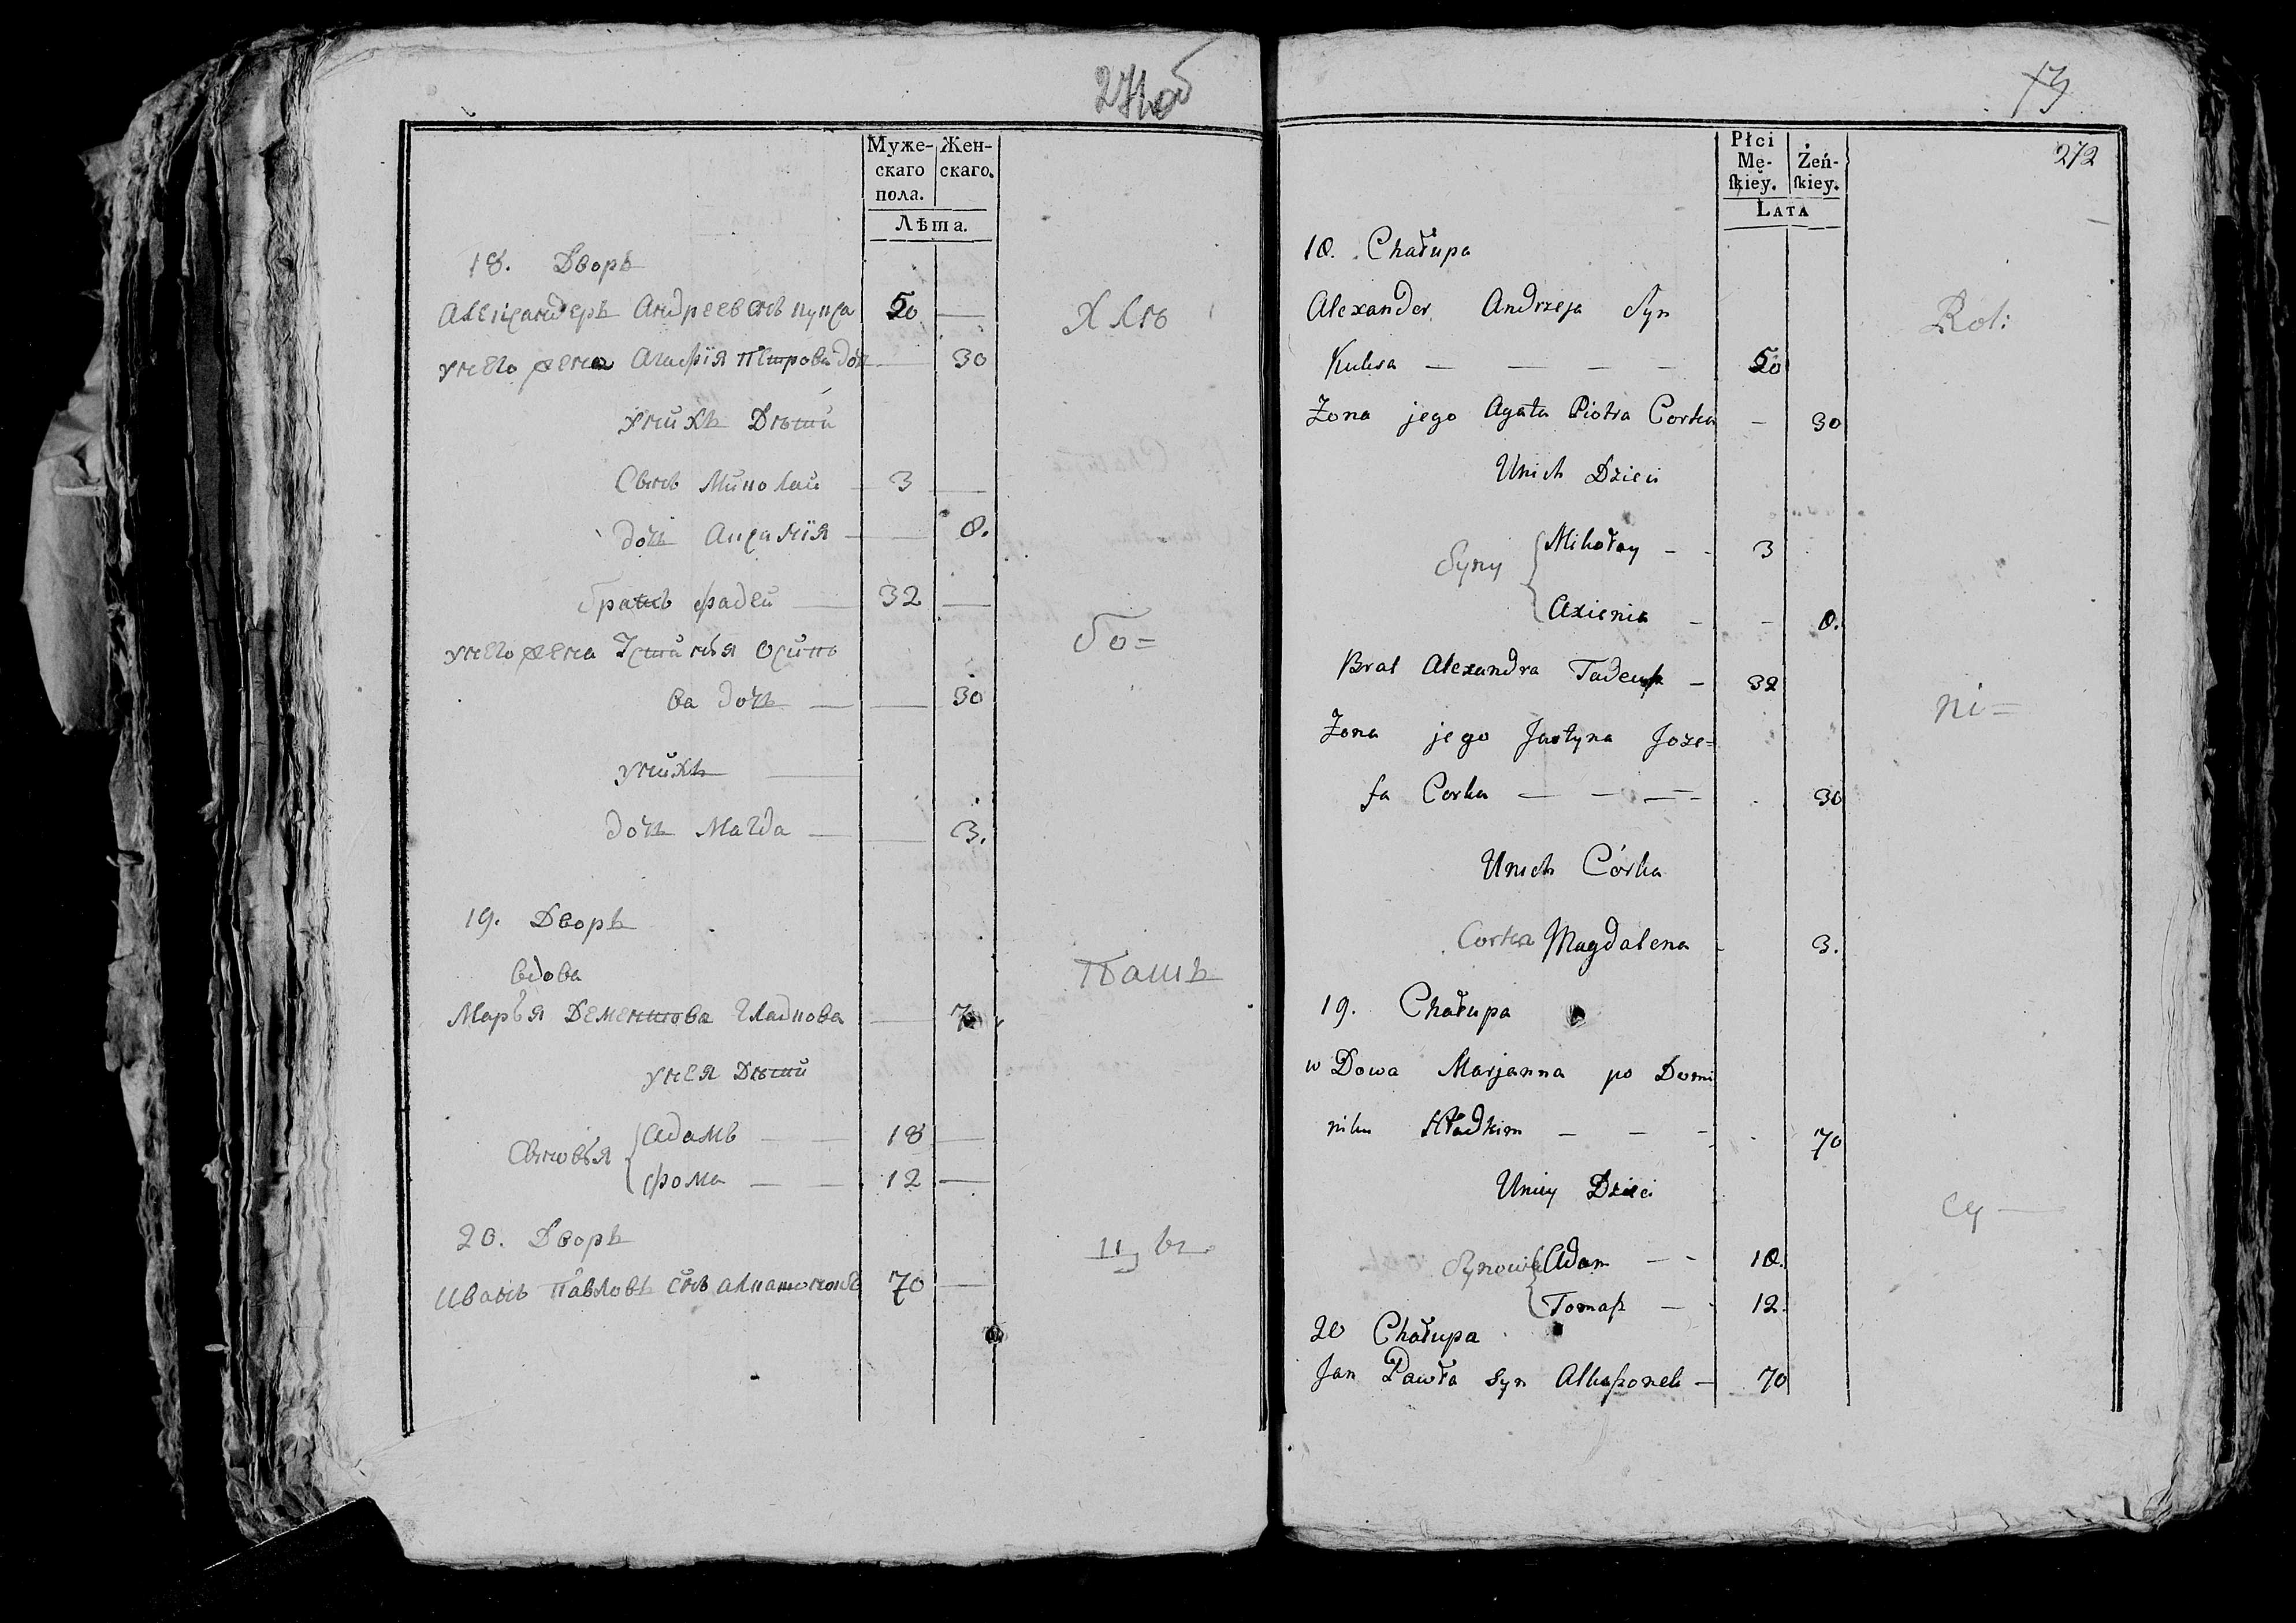 271об
Муже-
скаго
пола.
Жен-
скаго.
Лѣта.
18. Дворъ
Александеръ Андреевъ снъ Кукса 50 —
унего жена Агафія Петрова доч — 30
унихъ Дѣти
Сынъ Миколай — 3 —
дочь Аксанія — — 8.
братъ фадей — 32 —
унего жена Устинья Осипо
ва дочь — — 30
унихъ —
дочь Магда — — 3.
19. Дворъ
вдова
Марья Дементова Гладкова — 70
унея Дѣти
Сыновья
Адамъ — 18 —
фома — — 12 —
20. Дворъ
Иванъ Павловъ снъ 70 —
Хлѣ
бо=
Пашъ
цы
13
272
Płci
Mę-
ſkiey.
Żeń-
ſkiey.
Lata
18. Chałupa
Alexander Andrzeja Syn
Kuksa — — — — 50
Zona jego Agata Piotra Corka — 30
Unich Dzieci
Syny
Mikołay - - 3
Axienia - - 8.
Brat Alexandra Tadeusz — 32
Zona jego Justyna Joze=
fa Corka — — — 30
Unich Córka
Corka Magdalena - 3.
19. Chałupa
w Dowa Marjanna po Domi
niku Hładkim — — - 70
Uniey Dzieci
Synowie
Adam — - 18.
Tomasz — - 12.
20 Chałupa
Jan Pawła Syn — 70
Rol:
ni=
cy —